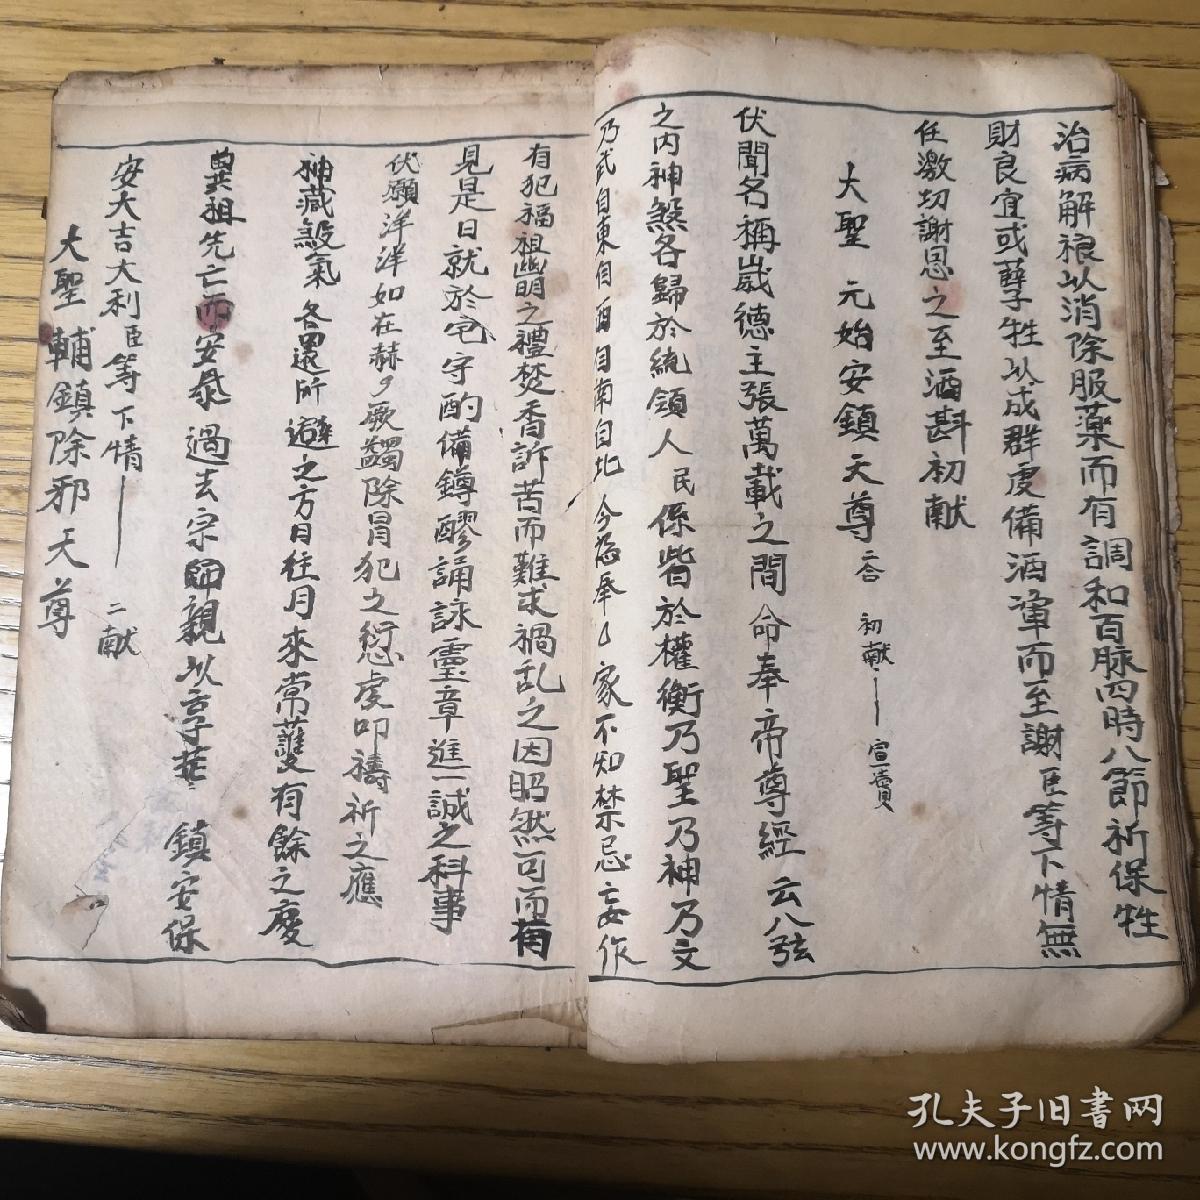 治病解禳以消除服藥而有調和百脉四時八節祈保牲
財良宜或孳牲以成群虔備酒渖而至謝臣等下情無
任激切謝恩之至酒斟初献
大聖 元始安鎮天尊 初献 宣
伏聞名稱歲德主張萬載之間命奉帝尊經云八弦
之内神煞各歸於統領人民係皆於權衡乃聖乃神乃文
乃武自東自西自南自北今恐奉乚家不知禁忌妄作
有犯福祖幽明之禮焚香訴苦而難求禍乱之因昭然可而
見是日就於宅守酌備鐏醪誦詠靈章進一誠之科事
伏願洋洋如在赫夕厥蠲除冒犯之愆虔叩禱祈之應
神藏殺氣各還所避之方日往月來常護有餘之慶
冀祖先亡而安泰過去宗親以享 鎮安保
安大吉大利臣等下情 二献
大聖輔鎮除邪天尊
孔夫子旧書网
www.kongfz.com